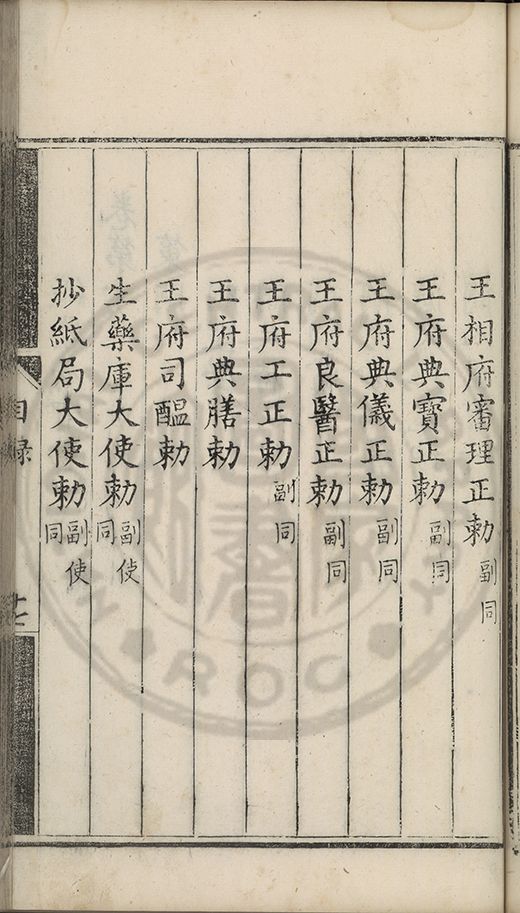 王相府審理正勅副同
王府典寶正勅副同
王府典儀正勅副同
王府良醫正勅副同
王府工正勅副同
王府典膳勅
王府司醞勅
生藥庫大使勅副使同
抄紙局大使勅副使同
目錄
ROC